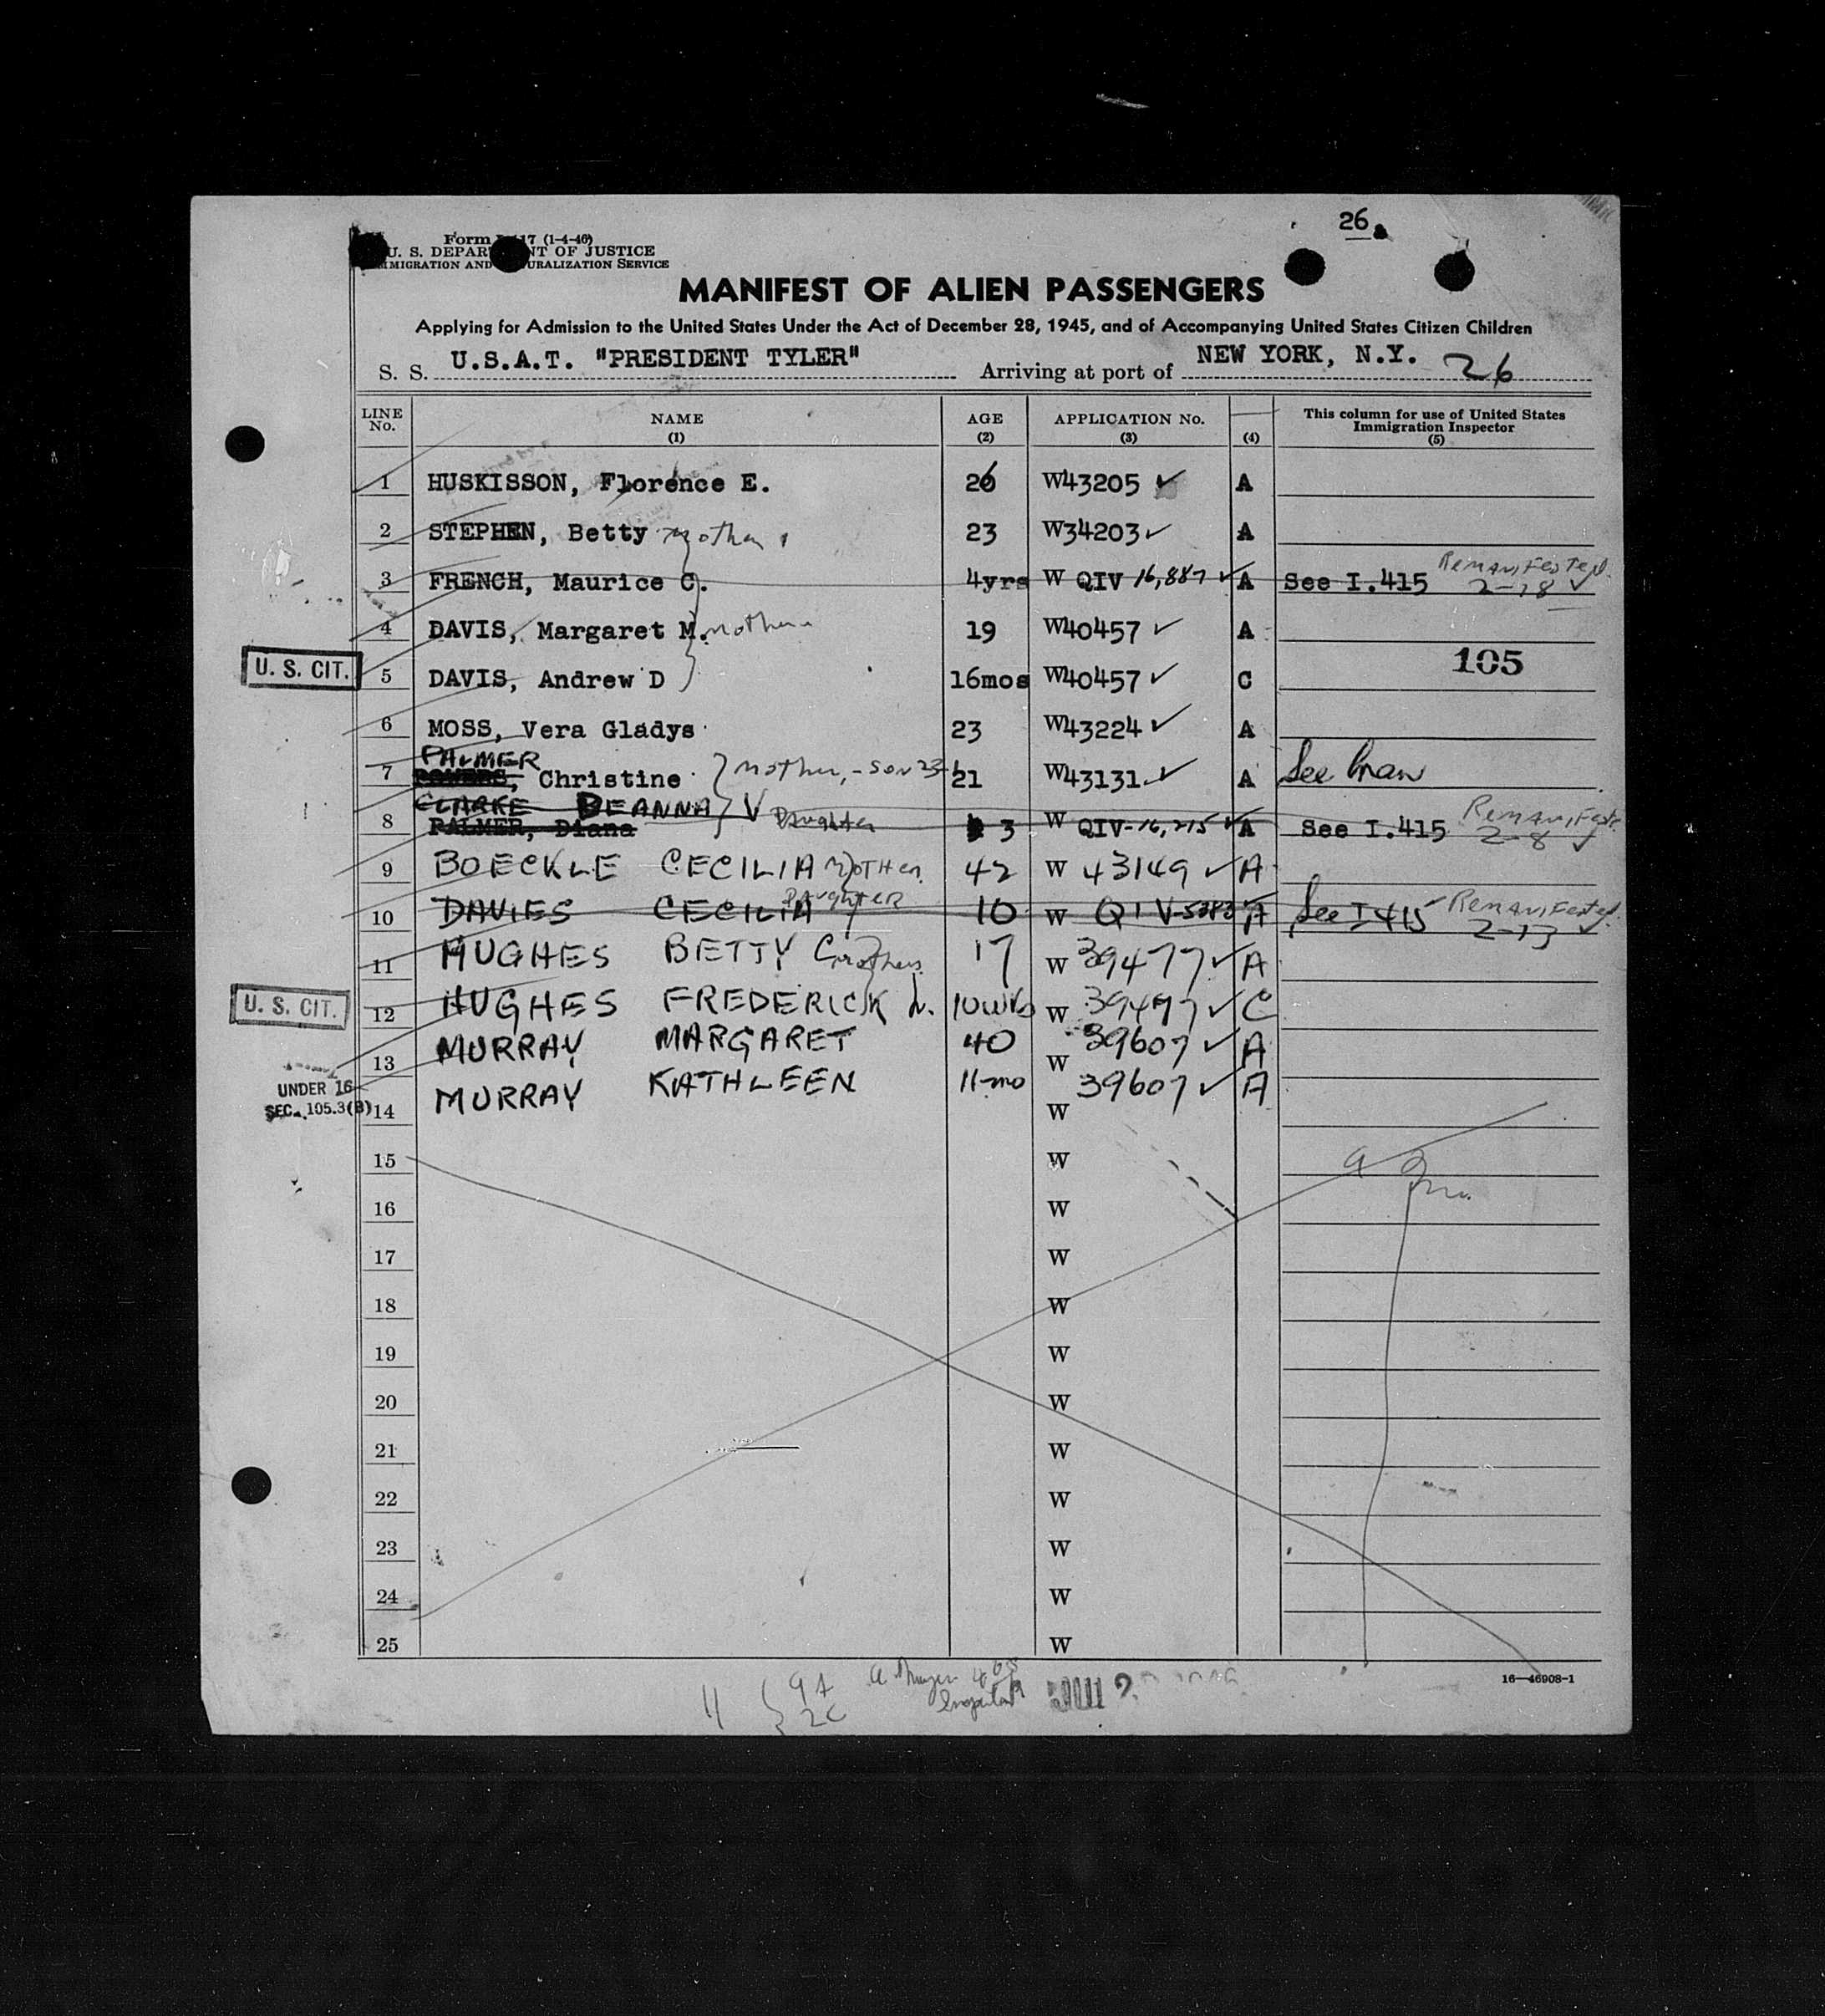 26
Form I-417 (1-4-46)
U. S. DEPARTMENT OF JUSTICE
IMMIGRATION AND NATURALIZATION SERVICE
MANIFEST OF ALIEN PASSENGERS
Applying for Admission to the United States Under the Act of December 28, 1945, and of Accompanying United States Citizen Children
S. S. U.S.A.T. "PRESIDENT TYLER" Arriving at port of NEW YORK, N.Y. 26
LINE No. NAME (1) AGE (2) APPLICATION No. (3) (4) This column for use of United States Immigration Inspector (5)
1 HUSKISSON, Florence E. 26 W43205 ✓ A
2 STEPHEN, Betty mother 23 W34203 ✓ A
3 FRENCH, Maurice C. 4yrs W QIV 16,887 ✓ A See I.415 Remanifested 2-18 ✓
4 DAVIS, Margaret M. mother 19 W40457 ✓ A
105
U. S. CIT. 5 DAVIS, Andrew D 16mos W40457 ✓ C
6 MOSS, Vera Gladys 23 W43224 ✓ A
PALMER
7 Christine mother, - son 23-1 21 W43131 ✓ A See
CLARKE DEANNA V Daughter
8 PALMER, Diana 3 W QIV-16,215 ✓ A See I.415 Remanifested 2-8 ✓
9 BOECKLE CECILIA MOTHER 42 W 43149 ✓ A
10 DAVIES CECILIA DAUGHTER 10 W QIV-5383 ✓ A See I 415 Remanifested 2-13 ✓
11 HUGHES BETTY C mother 17 W 39477 ✓ A
U. S. CIT. 12 HUGHES FREDERICK L. 10wks W 39477 ✓ C
13 MURRAY MARGARET 40 W 39607 ✓ A
UNDER 16
SEC. 105.3(B) 14 MURRAY KATHLEEN 11 mo W 39607 ✓ A
15 W
16 W
17 W
18 W
19 W
20 W
21 W
22 W
23 W
24 W
25 W
16—46908-1
11 { 9A
2C